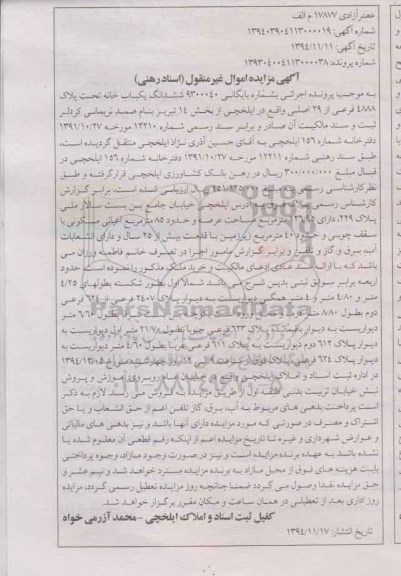 عصر آزادی ۱۷۸۷۷ م الف
شماره آگهی: ۱۳۹۴۰۳۹۰۴۱۱۳۰۰۰۰۱۹
تاریخ آگهی: ۱۳۹۴/۱۱/۱۱
شماره پرونده: ۱۳۹۳۰۴۰۰۴۱۱۳۰۰۰۰۳۸
آگهی مزایده اموال غیر منقول (اسناد رهنی)
به موجب پرونده اجرائی بشماره بایگانی ۹۳۰۰۰۴۰ ششدانگ یکباب خانه تحت پلاک
۴۸۸۸ فرعی از ۲۹ اصلی واقع در ایلخچی از بخش ۱۴ تبریز بنام صمد نریمانی کردلر
ثبت و سند مالکیت آن صادر و برابر سند رسمی شماره ۱۲۲۱۰ مورخه ۱۳۹۱/۱۰/۲۷
دفترخانه شماره ۱۵۶ ایلخچی به آقای حسین آذری نژاد ایلخچی منتقل گردیده است،
طبق سند رهنی شماره ۱۲۲۱۱ مورخه ۱۳۹۱/۱۰/۲۷ دفترخانه شماره ۱۵۶ ایلخچی در
قبال مبلغ ۳۰۰/۰۰۰/۰۰۰ ریال در رهن بانک کشاورزی ایلخچی قرار گرفته و طبق
نظر کارشناسی رسمی ریال ارزیابی شده است، برابر گزارش
کارشناس رسمی پلاک فوق به آدرس ایلخچی خیابان جامع بن بست سالار ملی
پلاک ۲۲۹، دارای مترمربع مساحت عرصه و حدود ۸۵ مترمربع اعیانی مسکونی با
سقف چوبی و حدود ۴۰ مترمربع زیرزمین با قدمت بیش از ۲۵ سال و دارای انشعابات
آب، برق و گاز و تلفن و برابر گزارش مامور اجرا در تصرف خانم فاطمه ورزان می
باشد که با ارائه سند عادی ادعای مالکیت و خرید ملک مذکور را نموده است، حدود
اربعه برابر سوابق ثبتی بدین شرح می باشد شمالا اول بطور شکسته بطولهای ۴/۲۵
متر و ۴/۸۰ متر و ۴ متر همگی دیواریست به دیوار پلاک ۲۴۰۷ فرعی ۶۲۴ فرعی
دوم بطول ۸/۸۰ متر ۶/۶۰ متر
دیواریست به دیوار باقیمانده پلاک ۶۲۳ فرعی جنوبا بطول ۲۱/۷۸ متر اول دیواریست به
دیوار پلاک ۶۱۲ دوم دیواریست به پلاک ۶۱۱ فرعی بطول ۴/۶۰ متر دیواریست به
دیوار پلاک ۶۲۴ فرعی پلاک فوق از ساعت ۹ الی ۱۲ روز چهارشنبه مورخ ۱۳۹۴/۱۲/۰۵
در اداره ثبت اسناد و املاک ایلخچی واقع در خیابان روبروی آموزش و پروش
نبش خیابان تربیت بدنی طبقه اول از طریق مزایده به فروش می رسد. لازم به ذکر
است پرداخت بدهی های مربوط به آب، برق، گاز تلفن اعم از حق انشعاب و یا حق
اشتراک و مصرف در صورتی که مورد مزایده دارای آنها باشد و نیز بدهی های مالیاتی
و عوارض شهرداری و غیره تا تاریخ مزایده اعم از اینکه رقم قطعی آن معلوم شده یا
نشده باشد به عهده برنده مزایده است و نیز در صورت وجود مازاد، وجوه پرداختی
بابت هزینه های فوق از محل مازاد به برنده مزایده مسترد خواهد شد و نیم عشر و
حق مزایده نقدا وصول می گردد ضمنا چنانچه روز مزایده تعطیل رسمی گردد، مزایده
روز اداری بعد از تعطیلی در همان ساعت و مکان مقرر برگزار خواهد شد.
کفیل ثبت اسناد و املاک ایلخچی - محمد آزرمی خواه
تاریخ انتشار: ۱۳۹۴/۱۱/۱۷
ParsNamadData